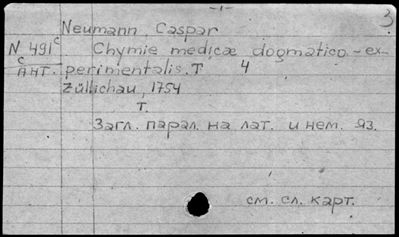 -1-
3
Neumann, Caspar
N 491 c Chymie medicæ dogmatico-ex-
с АНТ. perimentalis. T 4
Züllichau, 1754
T.
Загл. парал. на лат. и нем. яз.
см. сл. карт.